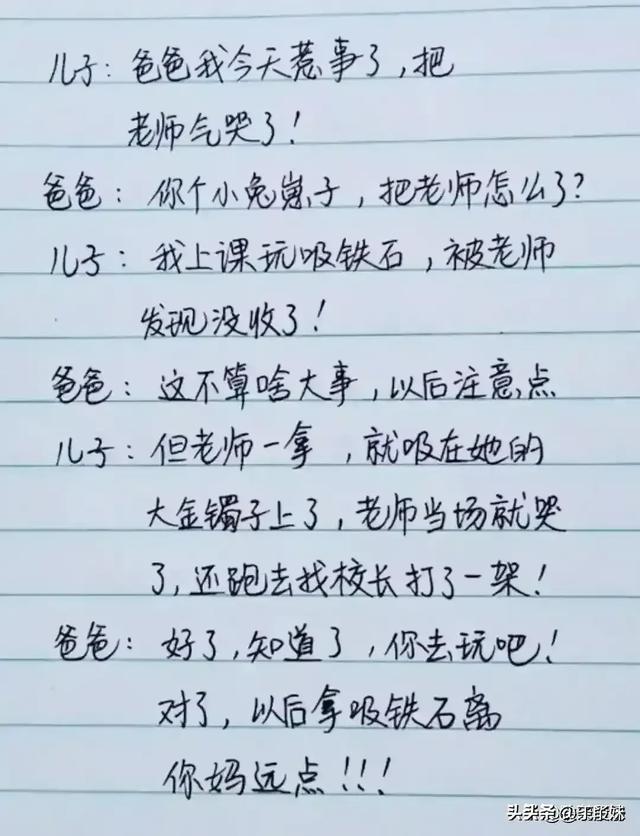 儿子：爸爸我今天惹事了，把
老师气哭了！
爸爸：你个小兔崽子，把老师怎么了？
儿子：我上课玩吸铁石，被老师
发现没收了！
爸爸：这不算啥大事，以后注意点
儿子：但老师一拿，就吸在她的
大金镯子上了，老师当场就哭
了，还跑去找校长打了一架！
爸爸：好了，知道了，你去玩吧！
对了，以后拿吸铁石离
你妈远点！！！
头条